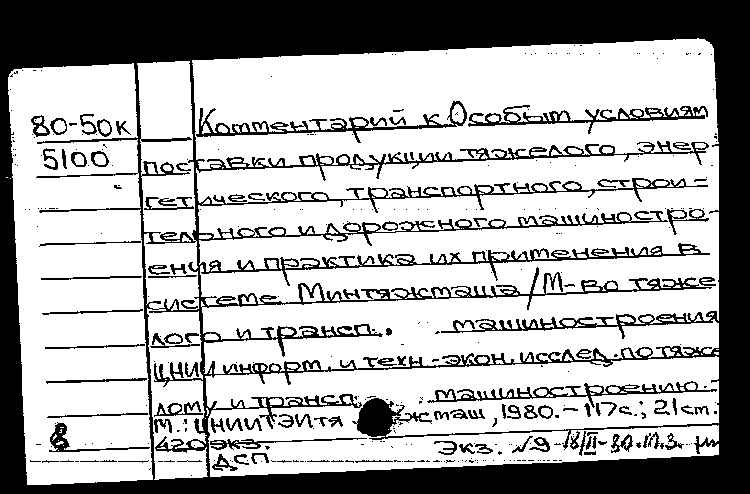 80-50к Комментарий к Особым условиям
5100 поставки продукции тяжелого, энер-
гетического, транспортного, строи=
тельного и дорожного машиностро-
ения и практика их применения в
системе Минтяжмаша / М-во тяже
лого и трансп. машиностроения
ЦНИИ информ. и техн.-экон. исслед. по тяже
лому и трансп. машиностроению.-
М.: ЦНИИТЭИтяжмаш, 1980.- 117с.; 21 см.
8 420 экз. Экз. √9
ДСП